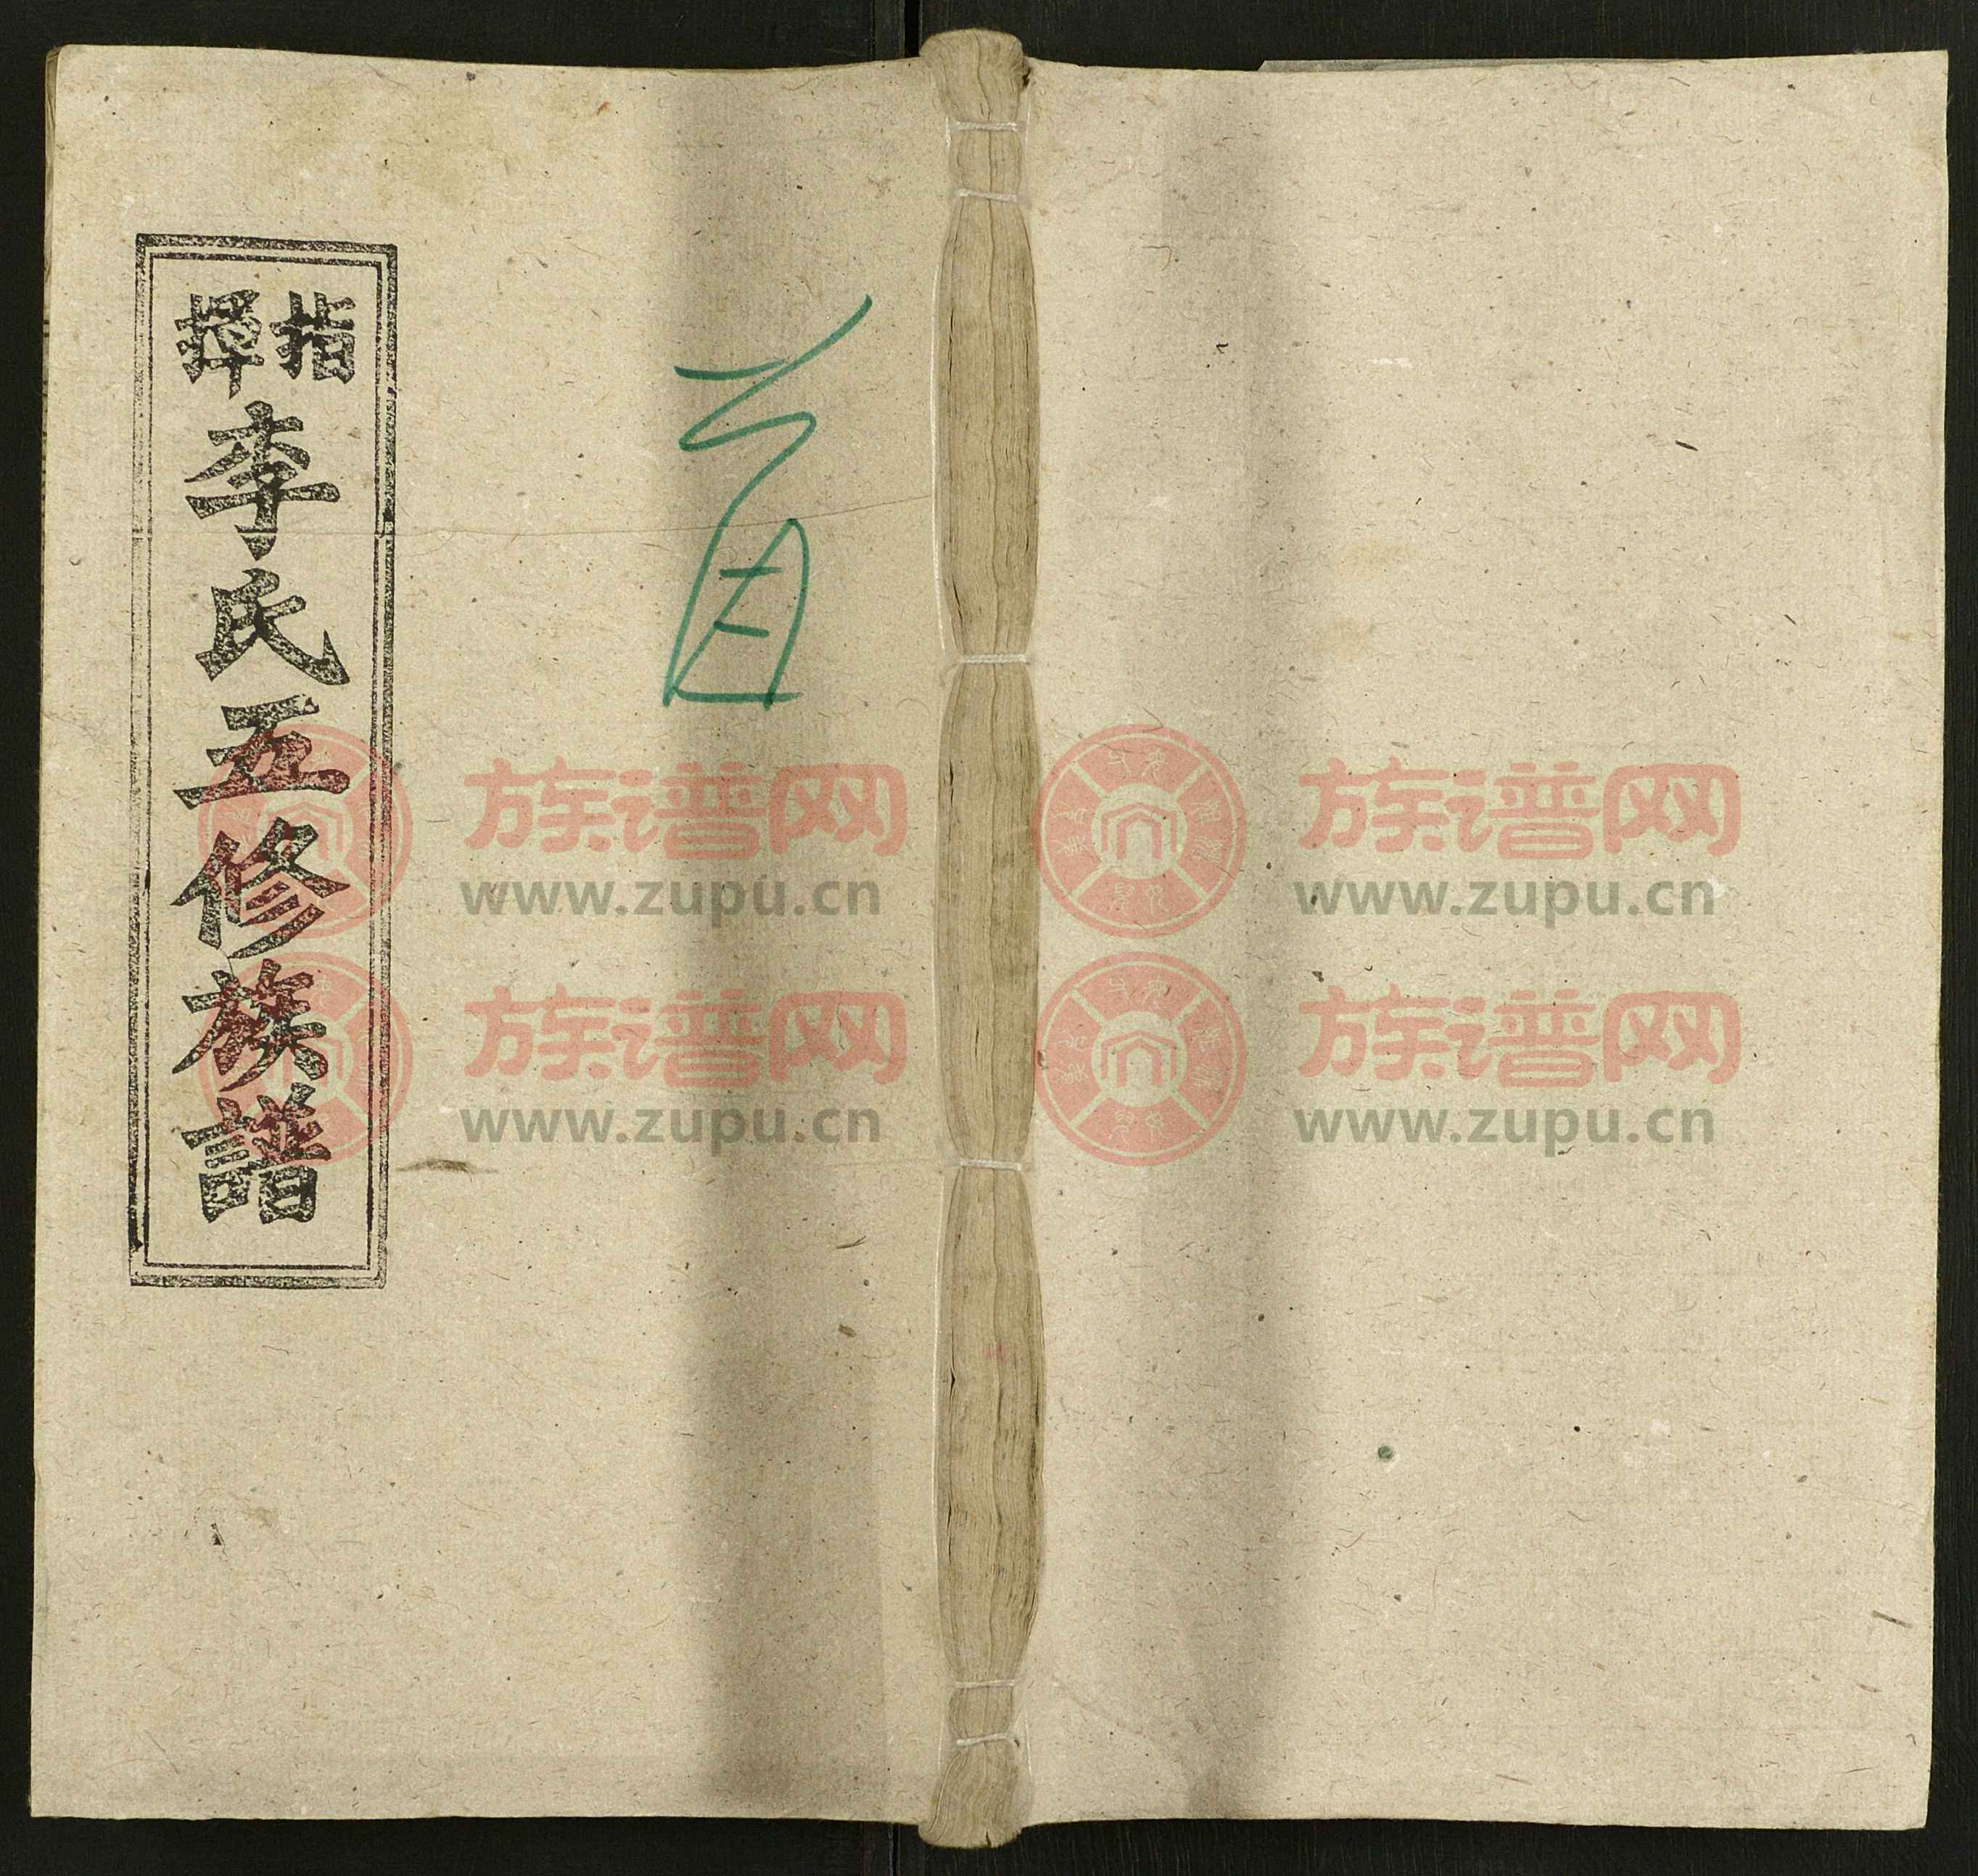 指揮
李氏五修族譜
首
族谱网
www.zupu.cn
族谱网
www.zupu.cn
族谱网
www.zupu.cn
族谱网
www.zupu.cn